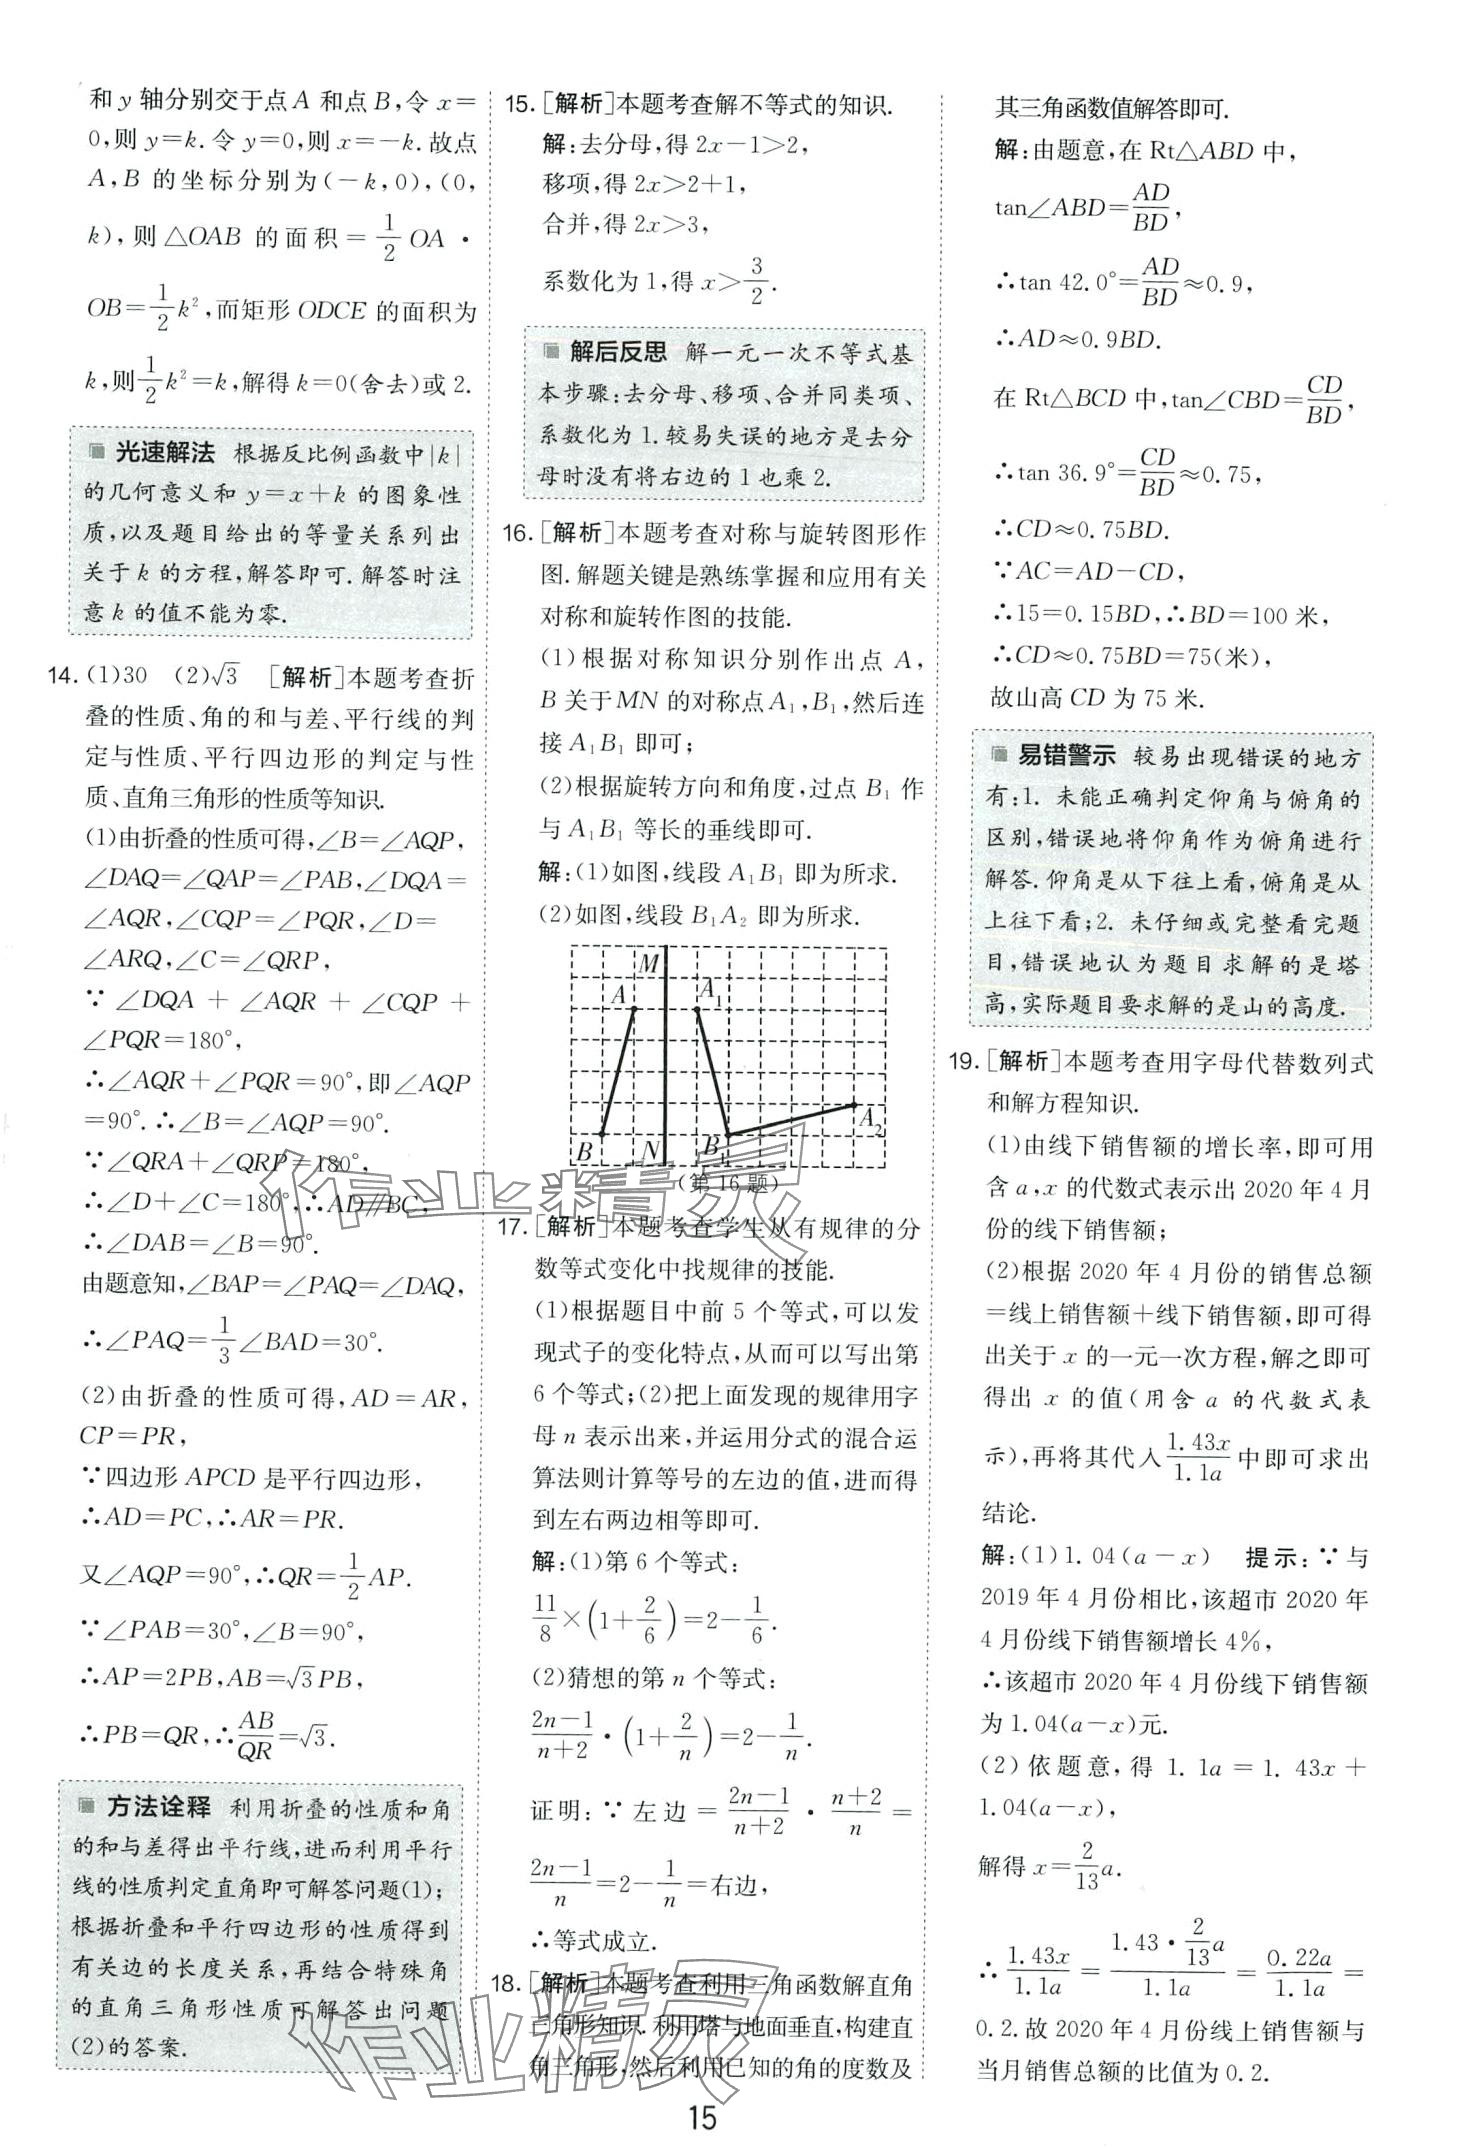 和y轴分别交于点A 和点B,令 x=
0,则 y=k.令 y=0,则 x=-k.故点
A,B 的坐标分别为(-k,0),(0,
k),则 △OAB 的面积 = 1/2 OA ·
OB=1/2k²,而矩形 ODCE 的面积为
k,则1/2k²=k,解得 k=0(舍去)或 2.
光速解法 根据反比例函数中|k|
的几何意义和 y=x+k 的图象性
质,以及题目给出的等量关系列出
关于 k 的方程,解答即可.解答时注
意 k 的值不能为零.
14. (1)30 (2)√3 [解析]本题考查折
叠的性质、角的和与差、平行线的判
定与性质、平行四边形的判定与性
质、直角三角形的性质等知识.
(1)由折叠的性质可得,∠B=∠AQP,
∠DAQ=∠QAP=∠PAB,∠DQA=
∠AQR,∠CQP=∠PQR,∠D=
∠ARQ,∠C=∠QRP,
∵ ∠DQA + ∠AQR + ∠CQP +
∠PQR=180°,
∴∠AQR+∠PQR=90°,即∠AQP
=90°.∴∠B=∠AQP=90°.
∵∠QRA+∠QRP=180°,
∴∠D+∠C=180°,∴AD∥BC,
∴∠DAB=∠B=90°.
由题意知,∠BAP=∠PAQ=∠DAQ,
∴∠PAQ=1/3∠BAD=30°.
(2)由折叠的性质可得,AD=AR,
CP=PR,
∵四边形 APCD 是平行四边形,
∴AD=PC,∴AR=PR.
又∠AQP=90°,∴QR=1/2AP.
∵∠PAB=30°,∠B=90°,
∴AP=2PB,AB=√3PB,
∴PB=QR,∴AB/QR=√3.
方法诠释 利用折叠的性质和角
的和与差得出平行线,进而利用平行
线的性质判定直角即可解答问题(1);
根据折叠和平行四边形的性质得到
有关边的长度关系,再结合特殊角
的直角三角形性质可解答出问题
(2)的答案.
15. [解析]本题考查解不等式的知识.
解:去分母,得 2x-1>2,
移项,得 2x>2+1,
合并,得 2x>3,
系数化为 1,得 x>3/2.
解后反思 解一元一次不等式基
本步骤:去分母、移项、合并同类项、
系数化为 1.较易失误的地方是去分
母时没有将右边的 1 也乘 2.
16. [解析]本题考查对称与旋转图形作
图.解题关键是熟练掌握和应用有关
对称和旋转作图的技能.
(1)根据对称知识分别作出点 A,
B 关于MN 的对称点A₁,B₁,然后连
接 A₁B₁ 即可;
(2)根据旋转方向和角度,过点 B₁ 作
与 A₁B₁ 等长的垂线即可.
解:(1)如图,线段 A₁B₁ 即为所求.
(2)如图,线段 B₁A₂ 即为所求.
M
A A₁
A₂
B N B₁
(第 16 题)
17. [解析]本题考查学生从有规律的分
数等式变化中找规律的技能.
(1)根据题目中前 5 个等式,可以发
现式子的变化特点,从而可以写出第
6 个等式;(2)把上面发现的规律用字
母 n 表示出来,并运用分式的混合运
算法则计算等号的左边的值,进而得
到左右两边相等即可.
解:(1)第 6 个等式:
11/8×(1+2/6)=2-1/6.
(2)猜想的第 n 个等式:
(2n-1)/(n+2)·(1+2/n)=2-1/n.
证明:∵左边=(2n-1)/(n+2)·(n+2)/n=
(2n-1)/n=2-1/n=右边,
∴等式成立.
18. [解析]本题考查利用三角函数解直角
三角形知识.利用塔与地面垂直,构建直
角三角形,然后利用已知的角的度数及
其三角函数值解答即可.
解:由题意,在 Rt△ABD 中,
tan∠ABD=AD/BD,
∴tan 42.0°=AD/BD≈0.9,
∴AD≈0.9BD.
在 Rt△BCD 中,tan∠CBD=CD/BD,
∴tan 36.9°=CD/BD≈0.75,
∴CD≈0.75BD.
∵AC=AD-CD,
∴15=0.15BD,∴BD=100 米,
∴CD≈0.75BD=75(米),
故山高 CD 为 75 米.
易错警示 较易出现错误的地方
有:1. 未能正确判定仰角与俯角的
区别,错误地将仰角作为俯角进行
解答.仰角是从下往上看,俯角是从
上往下看;2. 未仔细或完整看完题
目,错误地认为题目求解的是塔
高,实际题目要求解的是山的高度.
19. [解析]本题考查用字母代替数列式
和解方程知识.
(1)由线下销售额的增长率,即可用
含 a,x 的代数式表示出 2020 年 4 月
份的线下销售额;
(2)根据 2020 年 4 月份的销售总额
=线上销售额+线下销售额,即可得
出关于 x 的一元一次方程,解之即可
得出 x 的值(用含 a 的代数式表
示),再将其代入1.43x/1.1a中即可求出
结论.
解:(1)1.04(a-x) 提示:∵与
2019 年 4 月份相比,该超市 2020 年
4 月份线下销售额增长 4%,
∴该超市 2020 年 4 月份线下销售额
为 1.04(a-x)元.
(2) 依题意,得 1.1a=1.43x+
1.04(a-x),
解得 x=2/13a.
∴1.43x/1.1a=(1.43·2/13a)/1.1a=0.22a/1.1a=
0.2.故 2020 年 4 月份线上销售额与
当月销售总额的比值为 0.2.
15
作业精灵
作业精灵